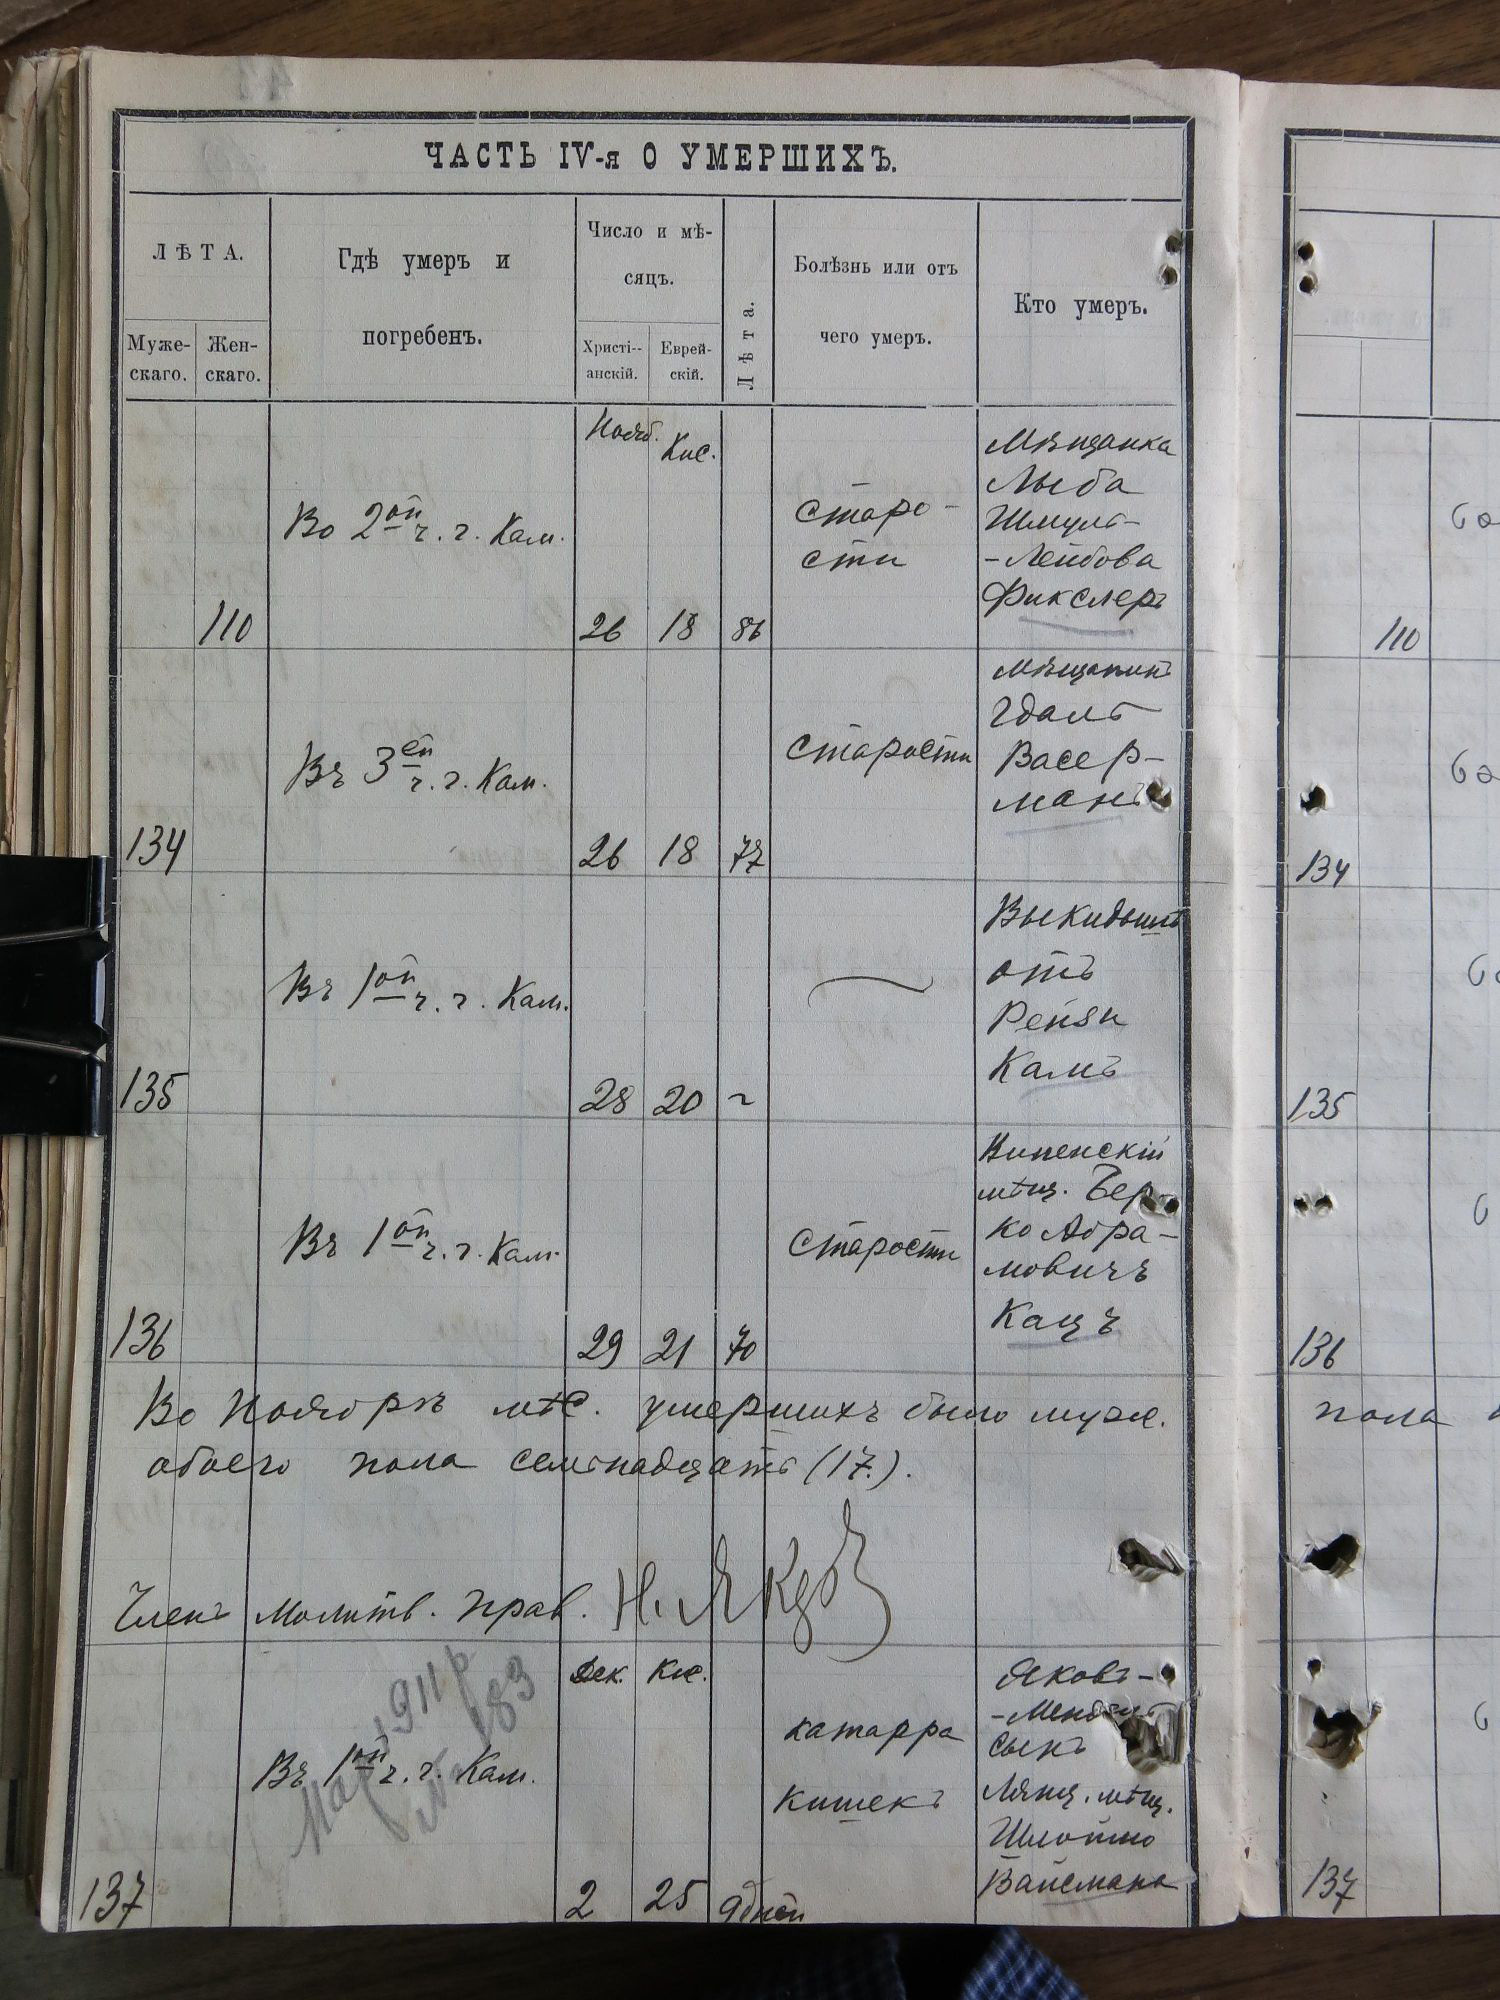 ЧАСТЬ IV-я О УМЕРШИХЪ.
ЛѢТА.
Муже-
скаго.
Жен-
скаго.
Гдѣ умеръ и
погребенъ.
Число и мѣ-
сяцъ.
Христі-
анскій.
Еврей-
скій.
Лѣта.
Болѣзнь или отъ
чего умеръ.
Кто умеръ.
Нояб.
Кис.
110
Во 2ой ч. г. Кам.
26
18
86
старо-
сти
Мѣщанка
Лыба
Шмуль-
-Лейбова
Фикслеръ
134
Въ 3ей ч. г. Кам.
26
18
77
старости
Мѣщанинъ
Гдаль
Васер-
манъ
135
Въ 1ой ч. г. Кам.
28
20
Выкидышъ
отъ
Рейзи
Камъ
136
Въ 1ой ч. г. Кам.
29
21
70
старости
мѣщ. Бер-
ко Абра-
мовичъ
Кацъ
Во Ноябрѣ мѣс. умершихъ было муж.
обоего пола семьнадцать (17.).
Членъ Молитв. Прав.
Дек.
Кис.
137
Въ 1ой ч. г. Кам.
183
2
25
9 дней
катарра
кишекъ
Яковъ-
-Мендель
сынъ
мѣщ.
Шлоймо
Вайсмана
110
134
135
136
пола
137